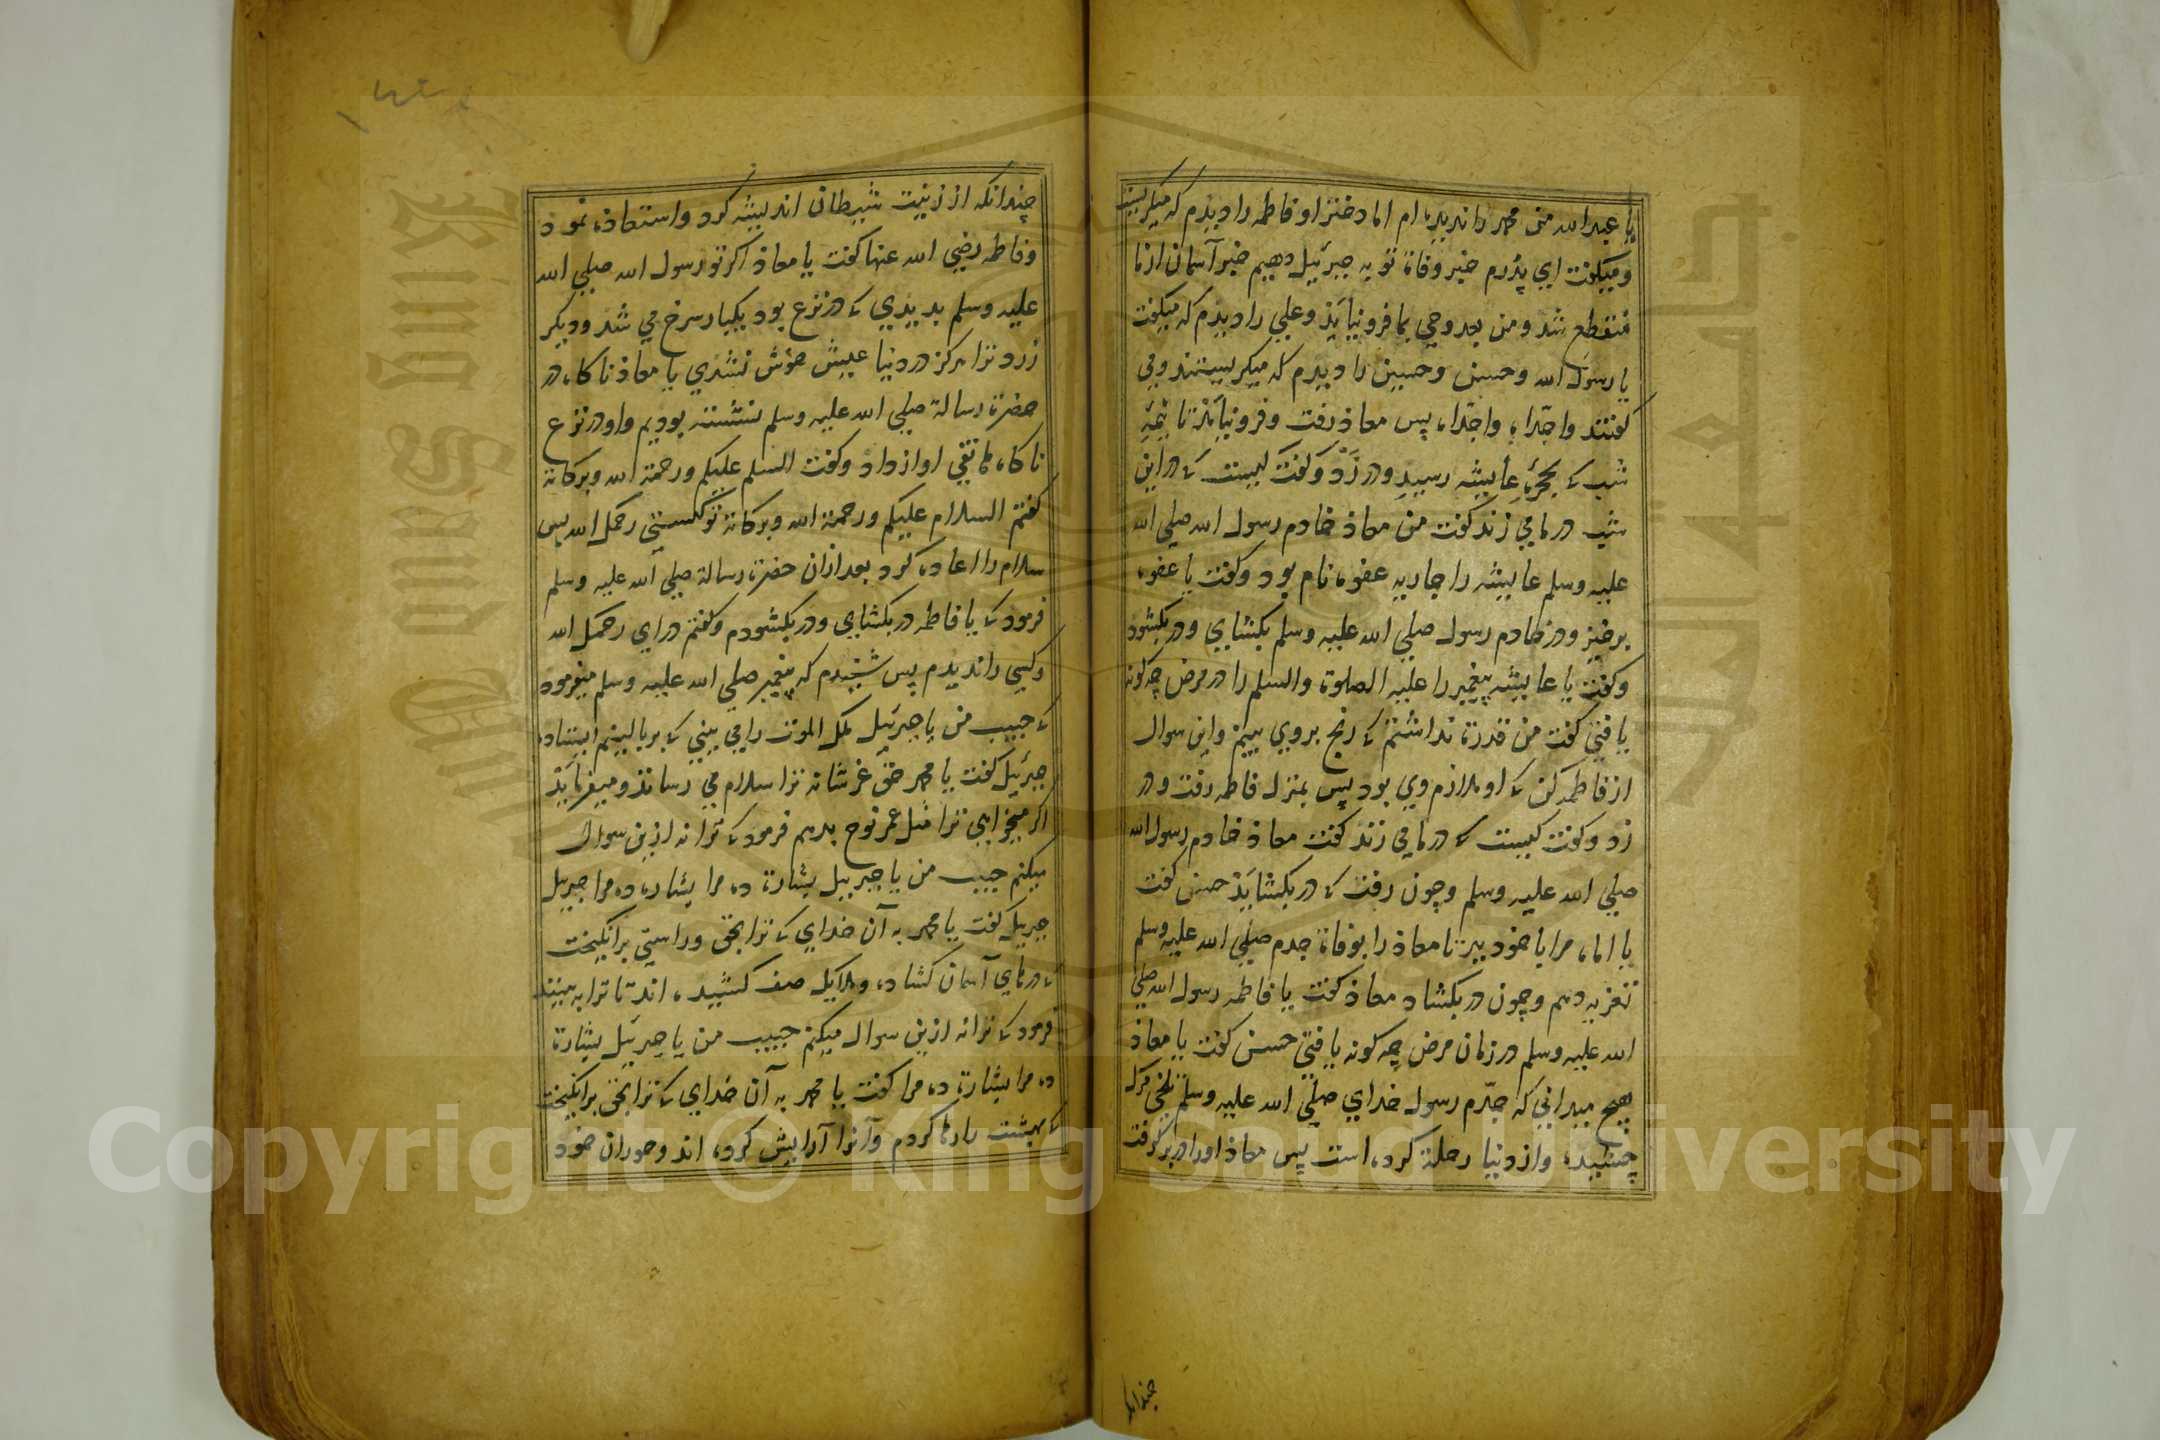 یا عبدالله من محمد را ندیده ام اما دختر او فاطمه را دیدم که میگریست
و میگفت ای پدرم خبر وفاة تو به جبرئیل دهیم خبر آسمان از ما
منقطع شد و من بعد وحی بما فرو نیاید و علی را دیدم که میگفت
یا رسول الله و حسن و حسین را دیدم که میگریستند و می
گفتند واجدّاه واجدّاه پس معاذ رفت و فرو نیامد تا نیمه
شب که بحجره عایشه رسید و در زد و گفت کیست که در این
شب در ما می زند گفت من معاذ خادم رسول الله صلی الله
علیه وسلم عایشه را جاریه عفوه نام بود و گفت یا عفوه
برخیز و در خادم رسول صلی الله علیه وسلم بکشای و در بکشود
و گفت یا عایشه پیغمبر را علیه الصلوة والسلم را در مرض چه کونه
یافتی گفت من قدرة نداشتم که رنج بروی بینم و این سوال
از فاطمه کن که او ملازم وی بود پس بمنزل فاطمه رفت و در
زد و گفت کیست که در ما می زند گفت معاذ خادم رسول الله
صلی الله علیه وسلم و چون رفت که در بکشاید حسن گفت
یا اماه مرا با خود ببر تا معاذ را بوفاة جدم صلی الله علیه وسلم
تعزیه دهم و چون در بکشاد معاذ گفت یا فاطمه رسول الله صلی
الله علیه وسلم در زمان مرض چه کونه یافتی حسن گفت یا معاذ
هیچ میدانی که جدّم رسول خدای صلی الله علیه وسلم تلخی مرگ
چشیده و از دنیا رحلة کرده است پس معاذ او را در بر گرفت
چندانکه
چندانکه از زینت شیطان اندیشه کرد و استعاذه نمود
و فاطمه رضی الله عنها گفت یا معاذ اگر تو رسول الله صلی الله
علیه وسلم بدیدی که در نزع بود یکبار سرخ می شد و دیگر
زرد ترا هرگز در دنیا عیش خوش نشدی یا معاذ ناکاه در
حضرة رسالة صلی الله علیه وسلم نشسته بودیم و او در نزع
ناکاه هاتفی اواز داد و گفت السلم علیکم ورحمة الله وبرکاته
گفتم السلام علیکم ورحمة الله وبرکاته تو کیستی رحمک الله پس
سلام را اعاده کرد بعد ازان حضرة رسالة صلی الله علیه وسلم
فرمود که یا فاطمه در بکشای و در بکشودم و گفتم درای رحمک الله
و کسی را ندیدم پس شنیدم که پیغمبر صلی الله علیه وسلم میفرمود
که حبیب من یا جبرئیل ملک الموت را می بینی که بر بالینم ایستاده
جبرئیل گفت یا محمد حق عز شانه ترا سلام می رساند و میفرماید
اگر میخواهی ترا مثل عمر نوح بدهم فرمود که ترا نه ازین سوال
میکنم حبیب من یا جبریل بشارة ده مرا بشاره ده مرا جبریل
جبریل گفت یا محمد به آن خدای که ترا بحق و راستی برانگیخت
که درهای آسمان کشاده و ملایک صف کشیده اند تا ترا به بینند
فرمود که ترا نه ازین سوال میکنم حبیب من یا جبرئیل بشارة
ده مرا بشارة ده مرا گفت یا محمد به آن خدای که ترا بحق برانگیخت
که بهشت را رها کردم و آنرا آرایش کرده اند و حوران خود
King Saud University
Copyright © King Saud University